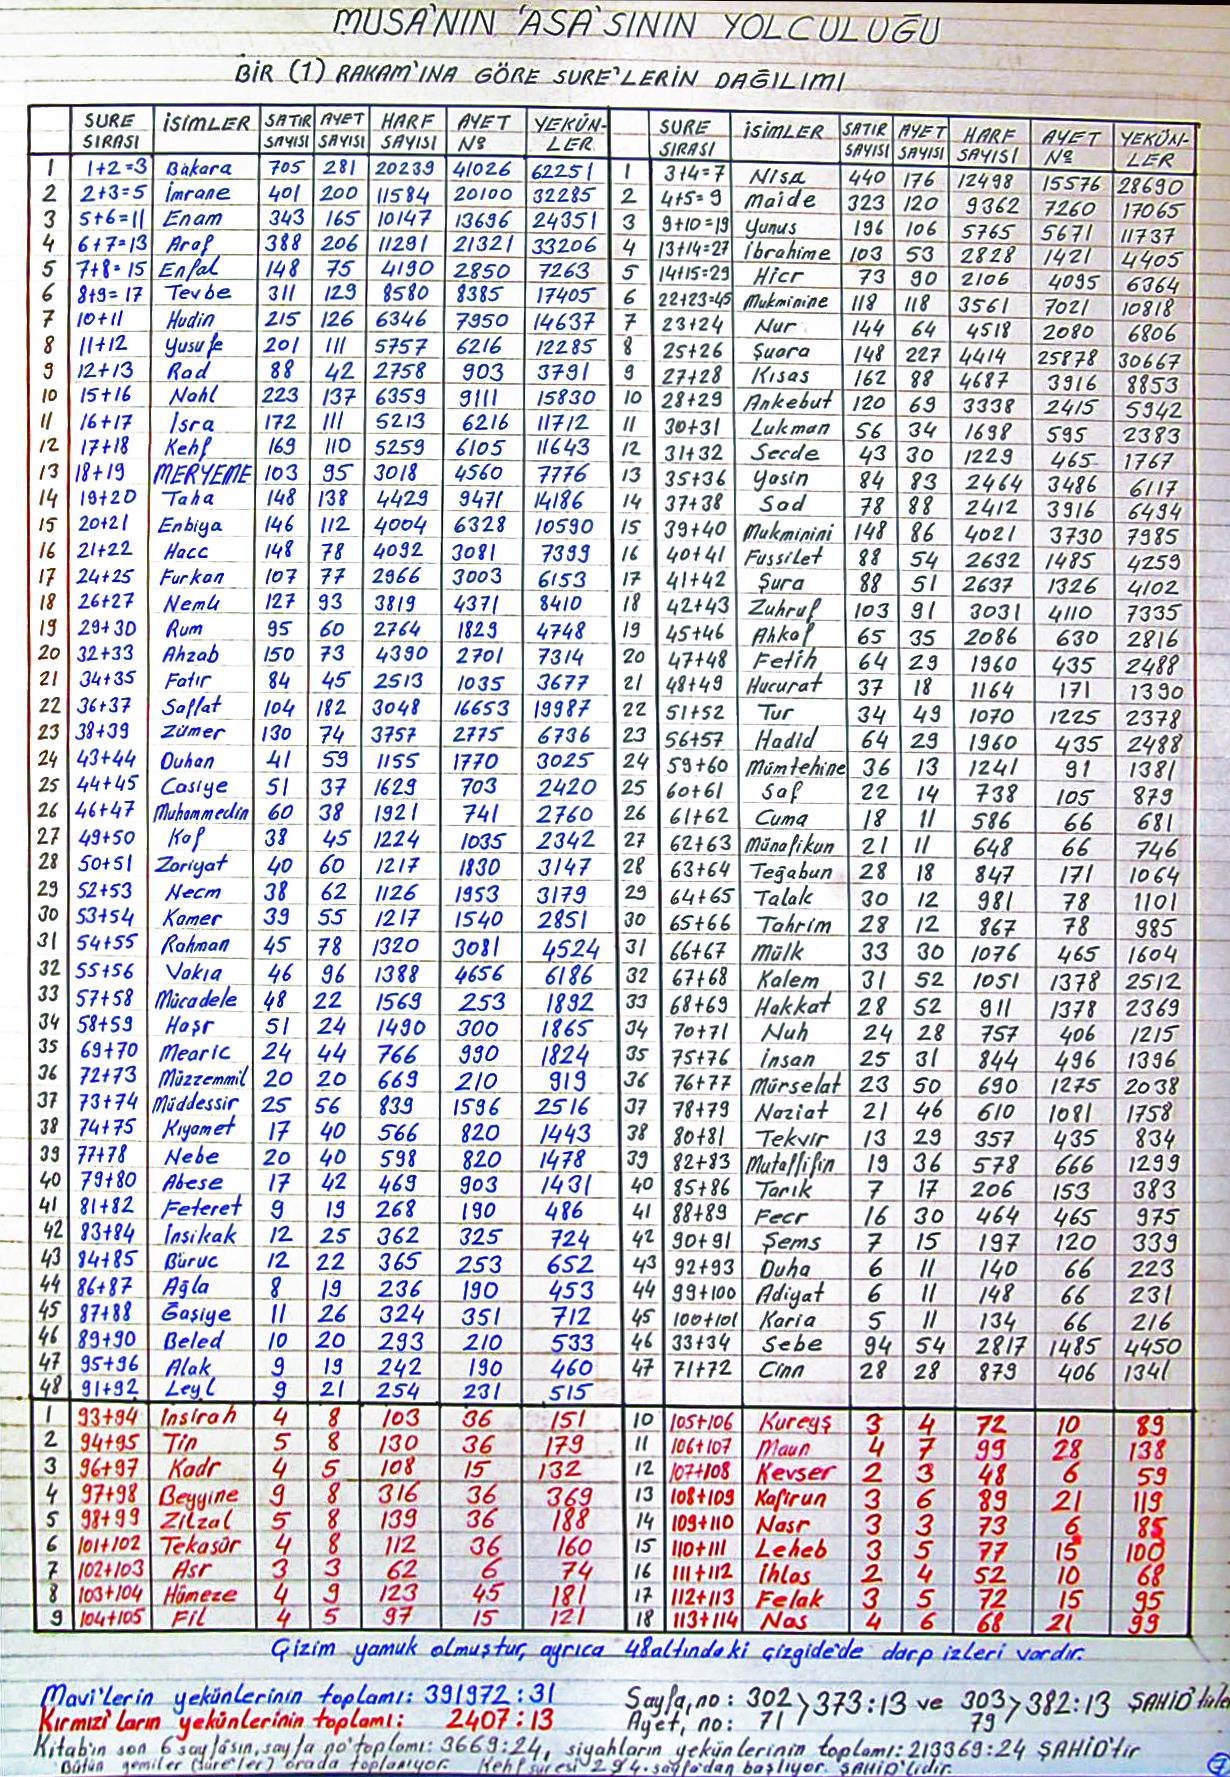 MUSA'NIN 'ASA'SININ YOLCULUĞU
BİR (1) RAKAM'INA GÖRE SURE'LERİN DAĞILIMI
SURE SIRASI İSİMLER SATIR SAYISI AYET SAYISI HARF SAYISI AYET Nº YEKÜN-LER SURE SIRASI İSİMLER SATIR SAYISI AYET SAYISI HARF SAYISI AYET Nº YEKÜN-LER
1 1+2=3 Bakara 705 281 20239 41026 62251 1 3+4=7 Nisa 440 176 12498 15576 28690
2 2+3=5 İmrane 401 200 11584 20100 32285 2 4+5=9 Maide 323 120 9362 7260 17065
3 5+6=11 Enam 343 165 10147 13696 24351 3 9+10=19 Yunus 196 106 5765 5671 11737
4 6+7=13 Araf 388 206 11291 21321 33206 4 13+14=27 İbrahime 103 53 2828 1421 4405
5 7+8=15 Enfal 148 75 4190 2850 7263 5 14+15=29 Hicr 73 90 2106 4095 6364
6 8+9=17 Tevbe 311 129 8580 8385 17405 6 22+23=45 Mukminine 118 118 3561 7021 10818
7 10+11 Hudin 215 126 6346 7950 14637 7 23+24 Nur 144 64 4518 2080 6806
8 11+12 Yusufe 201 111 5757 6216 12285 8 25+26 Şuara 148 227 4414 25878 30667
9 12+13 Rad 88 42 2758 903 3791 9 27+28 Kısas 162 88 4687 3916 8853
10 15+16 Nahl 223 137 6359 9111 15830 10 28+29 Ankebut 120 69 3338 2415 5942
11 16+17 İsra 172 111 5213 6216 11712 11 30+31 Lukman 56 34 1698 595 2383
12 17+18 Kehf 169 110 5259 6105 11643 12 31+32 Secde 43 30 1229 465 1767
13 18+19 MERYEME 103 95 3018 4560 7776 13 35+36 Yasin 84 83 2464 3486 6117
14 19+20 Taha 148 138 4429 9471 14186 14 37+38 Sad 78 88 2412 3916 6494
15 20+21 Enbiya 146 112 4004 6328 10590 15 39+40 Mukminini 148 86 4021 3730 7985
16 21+22 Hacc 148 78 4092 3081 7399 16 40+41 Fussilet 88 54 2632 1485 4259
17 24+25 Furkan 107 77 2966 3003 6153 17 41+42 Şura 88 51 2637 1326 4102
18 26+27 Nemli 127 93 3819 4371 8410 18 42+43 Zuhruf 103 91 3031 4110 7335
19 29+30 Rum 95 60 2764 1829 4748 19 45+46 Ahkaf 65 35 2086 630 2816
20 32+33 Ahzab 150 73 4390 2701 7314 20 47+48 Fetih 64 29 1960 435 2488
21 34+35 Fatır 84 45 2513 1035 3677 21 48+49 Hucurat 37 18 1164 171 1390
22 36+37 Saffat 104 182 3048 16653 19987 22 51+52 Tur 34 49 1070 1225 2378
23 38+39 Zümer 130 74 3757 2775 6736 23 56+57 Hadid 64 29 1960 435 2488
24 43+44 Duhan 41 59 1155 1770 3025 24 59+60 Mümtehine 36 13 1241 91 1381
25 44+45 Casiye 51 37 1629 703 2420 25 60+61 Saf 22 14 738 105 879
26 46+47 Muhammedin 60 38 1921 741 2760 26 61+62 Cuma 18 11 586 66 681
27 49+50 Kaf 38 45 1224 1035 2342 27 62+63 Münafikun 21 11 648 66 746
28 50+51 Zariyat 40 60 1217 1830 3147 28 63+64 Teğabun 28 18 847 171 1064
29 52+53 Necm 38 62 1126 1953 3179 29 64+65 Talak 30 12 981 78 1101
30 53+54 Kamer 39 55 1217 1540 2851 30 65+66 Tahrim 28 12 867 78 985
31 54+55 Rahman 45 78 1320 3081 4524 31 66+67 Mülk 33 30 1076 465 1604
32 55+56 Vakıa 46 96 1388 4656 6186 32 67+68 Kalem 31 52 1051 1378 2512
33 57+58 Mücadele 48 22 1569 253 1892 33 68+69 Hakkat 28 52 911 1378 2369
34 58+59 Haşr 51 24 1490 300 1865 34 70+71 Nuh 24 28 757 406 1215
35 69+70 Mearic 24 44 766 990 1824 35 75+76 İnsan 25 31 844 496 1396
36 72+73 Müzzemmil 20 20 669 210 919 36 76+77 Mürselat 23 50 690 1275 2038
37 73+74 Müddessir 25 56 839 1596 2516 37 78+79 Naziat 21 46 610 1081 1758
38 74+75 Kıyamet 17 40 566 820 1443 38 80+81 Tekvir 13 29 357 435 834
39 77+78 Nebe 20 40 598 820 1478 39 82+83 Mutaffifin 19 36 578 666 1299
40 79+80 Abese 17 42 469 903 1431 40 85+86 Tarık 7 17 206 153 383
41 81+82 Feteret 9 19 268 190 486 41 88+89 Fecr 16 30 464 465 975
42 83+84 İnsikak 12 25 362 325 724 42 90+91 Şems 7 15 197 120 339
43 84+85 Büruc 12 22 365 253 652 43 92+93 Duha 6 11 140 66 223
44 86+87 Ağla 8 19 236 190 453 44 99+100 Adiyat 6 11 148 66 231
45 87+88 Ğaşiye 11 26 324 351 712 45 100+101 Karia 5 11 134 66 216
46 89+90 Beled 10 20 293 210 533 46 33+34 Sebe 94 54 2817 1485 4450
47 95+96 Alak 9 19 242 190 460 47 71+72 Cinn 28 28 879 406 1341
48 91+92 Leyl 9 21 254 231 515
1 93+94 İnsirah 4 8 103 36 151 10 105+106 Kureyş 3 4 72 10 89
2 94+95 Tin 5 8 130 36 179 11 106+107 Maun 4 7 99 28 138
3 96+97 Kadr 4 5 108 15 132 12 107+108 Kevser 2 3 48 6 59
4 97+98 Beyyine 9 8 316 36 369 13 108+109 Kafirun 3 6 89 21 119
5 98+99 Zilzal 5 8 139 36 188 14 109+110 Nasr 3 3 73 6 85
6 101+102 Tekasür 4 8 112 36 160 15 110+111 Leheb 3 5 77 15 100
7 102+103 Asr 3 3 62 6 74 16 111+112 İhlas 2 4 52 10 68
8 103+104 Hümeze 4 9 123 45 181 17 112+113 Felak 3 5 72 15 95
9 104+105 Fil 4 5 97 15 121 18 113+114 Nas 4 6 68 21 99
Çizim yamuk olmuştur, ayrıca 48 altındaki çizgide'de darp izleri vardır.
Mavi'lerin yekünlerinin toplamı: 391972:31
Kırmızı'ların yekünlerinin toplamı: 2407:13
Sayfa, no: 302 > 373:13 ve 303 > 382:13 ŞAHİD'tirler
Ayet, no: 71 79
Kitab'ın son 6 sayfasın, sayfa no'toplamı: 3669:24, siyahların yekünlerinin toplamı: 213369:24 ŞAHİD'tir
Bütün gemiler (sure'ler) orada toplanıyor. Kehf suresi 294. sayfa'dan başlıyor. ŞAHİD'lidir.
7